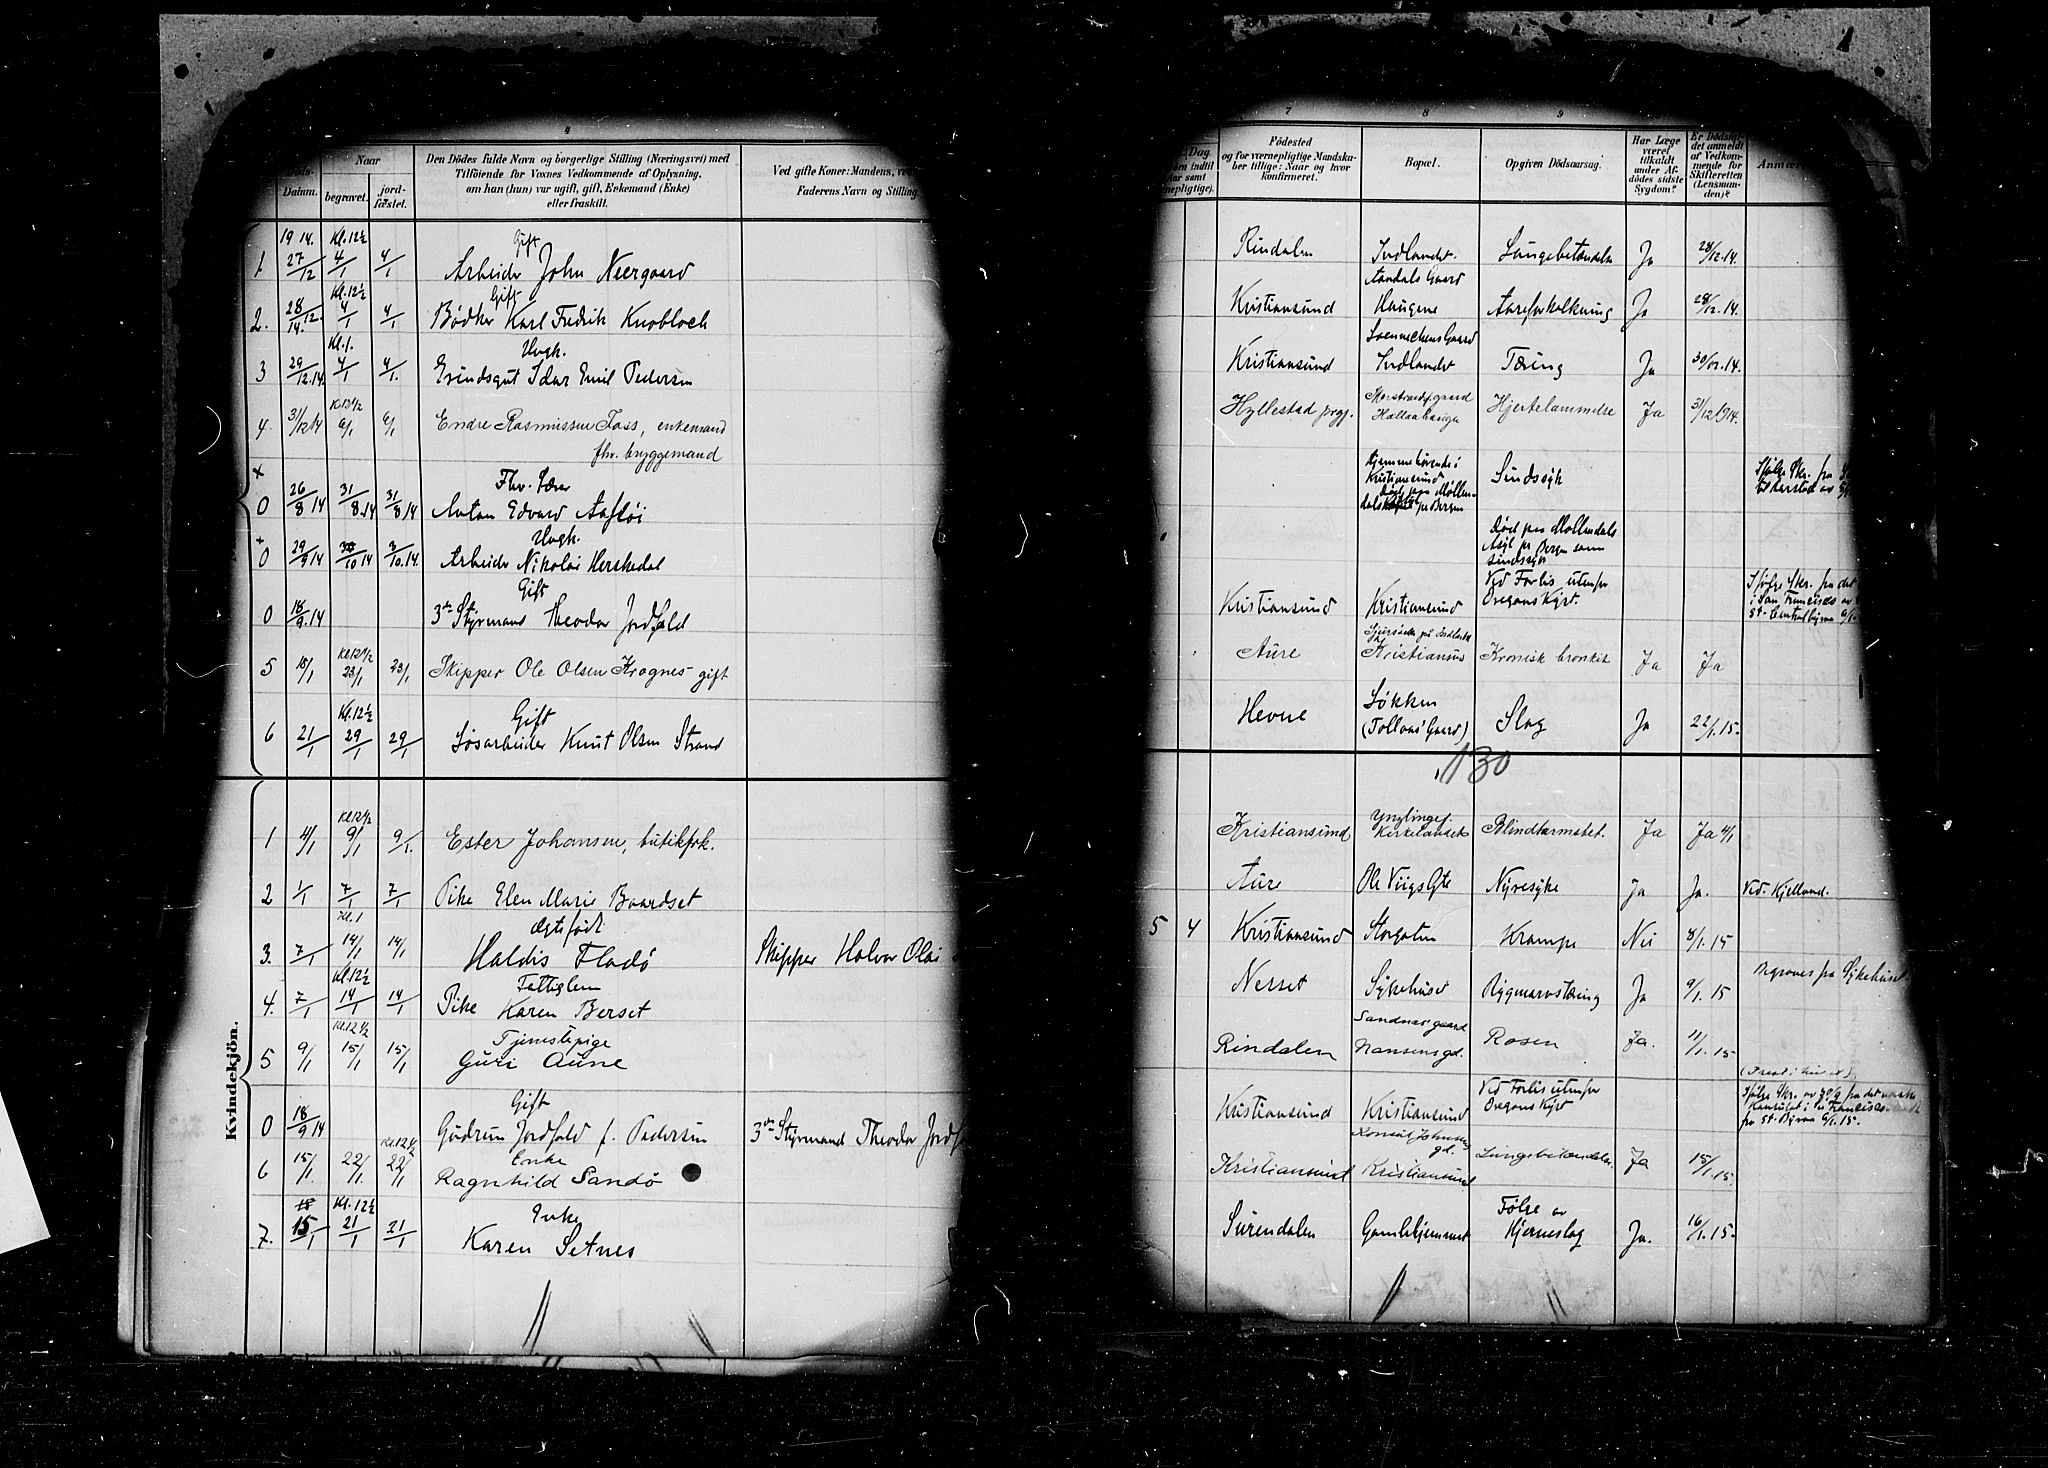 4
Döds-
Datum.
Naar
begravet.
jord-
fæstet.
Den Dödes fulde Navn og borgerlige Stilling (Næringsvei) med
Tilföiende for Voxnes Vedkommende af Oplysning,
om han (hun) var ugift, gift, Enkemand (Enke)
eller fraskilt.
Ved gifte Koner: Mandens, ve
Faderens Navn og Stilling
19 14. Kl. 12½ Gift
1. 27/12 4/1 4/1 Arbeider John Neergaard
Kl. 12½ Gift
2. 28/12 14. 4/1 4/1 Bødker Karl Fredrik Knobloch
Kl. 1. Ungk.
3 29/12.14. 4/1 4/1. Erindsgut Idar Emil Pedersen
Kl 12 1/2
4. 31/12 14 6/1 6/1 Endre Rasmussen Foss, enkemand
fhv. bryggemand
+ Fhv. Lærer
0 26/8 14 31/8.14 31/8 14 Anton Edvard Aafløi
+ Ungk.
0 29/9 14 3/10 14 3/10.14. Arbeider Nikolai Herskedal
Gift
0 18/9.14 3die Styrmand Theodor Jordfald
Kl 12 1/2
5 18/1 23/1 23/1 Skipper Ole Olsen Krognes gift
Kl. 12½ Gift
6 21/1 29/1 29/1 Løsarbeider Knut Olsen Strand
Kvindekjön.
Kl 12 1/2
1 4/1 9/1 9/1. Ester Johansen, butikfrk.
2 1/1 7/1 7/1 Pike Elen Marie Baardset
Kl. 1 Ægtefødt
3. 7/1 14/1 14/1 Haldis Fladø Skipper Halvor Olai
Kl. 12½ Fattiglem
4. 7/1 14/1 14/1 Pike Karen Berset
Kl. 12 1/2 Tjenestepige
5 9/1 15/1 15/1 Guri Aune
Gift
0 18/9 14 Gudrun Jordfald f. Pedersen 3die Styrmand Theodor Jordf
Kl. 12 1/2 Enke
6 15/1. 22/1. 22/1 Ragnhild Sandø
Kl. 12½ Enke
7. 15/1 21/1 21/1 Karen Setnes
7
8
9
Dag
Födested
og for værnepligtige Mandska-
ber tillige: Naar og hvor
konfirmeret.
Bopæl.
Opgiven Dödsaarsag.
Har Læge
været
tilkaldt
under Af-
dödes sidste
Sygdom?
Er Dödsfal-
det anmeldt
af Vedkom-
mende for
Skifteretten
(Lensman-
den)?
Anmær
Rindalen Indlandet. Lungebetændelse Ja 28/12.14.
Aandals Gaard
Kristiansund Haugene Aareforkalkning Ja 28/12.14.
Kristiansund Indlandet Tæring Ja 30/12.14.
Hyllestad prgj. Hallenhauge Hjertelammelse Ja 31/12 1914.
Hjemmehørende i
Kristiansund
død paa Møllen-
dal pr Bergen
Sindssyk
Ifølge Skr. fra
Død paa Møllendals
Asyl pr Bergen som
sindssyk
Kristiansund Kristiansund Ved Forlis utenfor
Oregons Kyst.
Ifølge Skr. fra det
i San Francisco
Aure Kristiansund Kronisk bronkit Ja Ja
Hevne Løkken
(Tollaas' Gaard) Slag Ja 22/1.15.
130
Kristiansund Ynglingef.
Kirkelandet Blindtarmsbet. Ja Ja 4/1
Aure Ole Viigs Gte Nyresyke Ja Ja. Ved. Kjelland.
5 4 Kristiansund Storgaten Krampe Nei 8/1.15
Nesset Sykehuset Rygmarvstæring Ja 9/1.15 Begraves fra Sykehuset
Sandnesgaard
Rindalen Nansensgd. Rosen Ja. 11/1.15
Kristiansund Kristiansund Ved Forlis utenfor
Oregons Kyst
Ifølge Skr. av 29/9 fra det norske
Konsulat i San Francisco
Konsul Johnsens
gd.
Kristiansund Kristiansund Lungebetændelse. Ja 15/1.15.
Surendalen Gamlehjemmet Følge av
Hjerneslag Ja. 16/1.15.